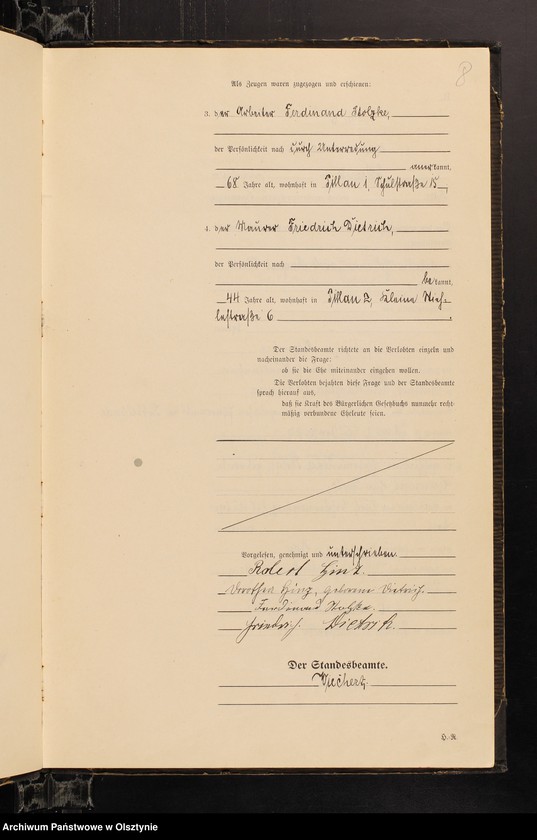 8
Als Zeugen waren zugezogen und erschienen:
3. der Arbeiter Ferdinand Stolzke,
der Persönlichkeit nach durch Unterredung
anerkannt,
68 Jahre alt, wohnhaft in Schulstraße 15
4. der Maurer Friedrich Dietrich,
der Persönlichkeit nach
bekannt,
44 Jahre alt, wohnhaft in Kleine
6
Der Standesbeamte richtete an die Verlobten einzeln und
nacheinander die Frage:
ob sie die Ehe miteinander eingehen wollen.
Die Verlobten bejahten diese Frage und der Standesbeamte
sprach hierauf aus,
daß sie kraft des Bürgerlichen Gesetzbuchs nunmehr recht-
mäßig verbundene Eheleute seien.
Vorgelesen, genehmigt und unterschrieben.
Robert Hinz.
Dorothea Hinz, geborene Dietrich.
Ferdinand Stolzke.
Friedrich Dietrich.
Der Standesbeamte.
Wiechert.
H. R.
Archiwum Państwowe w Olsztynie